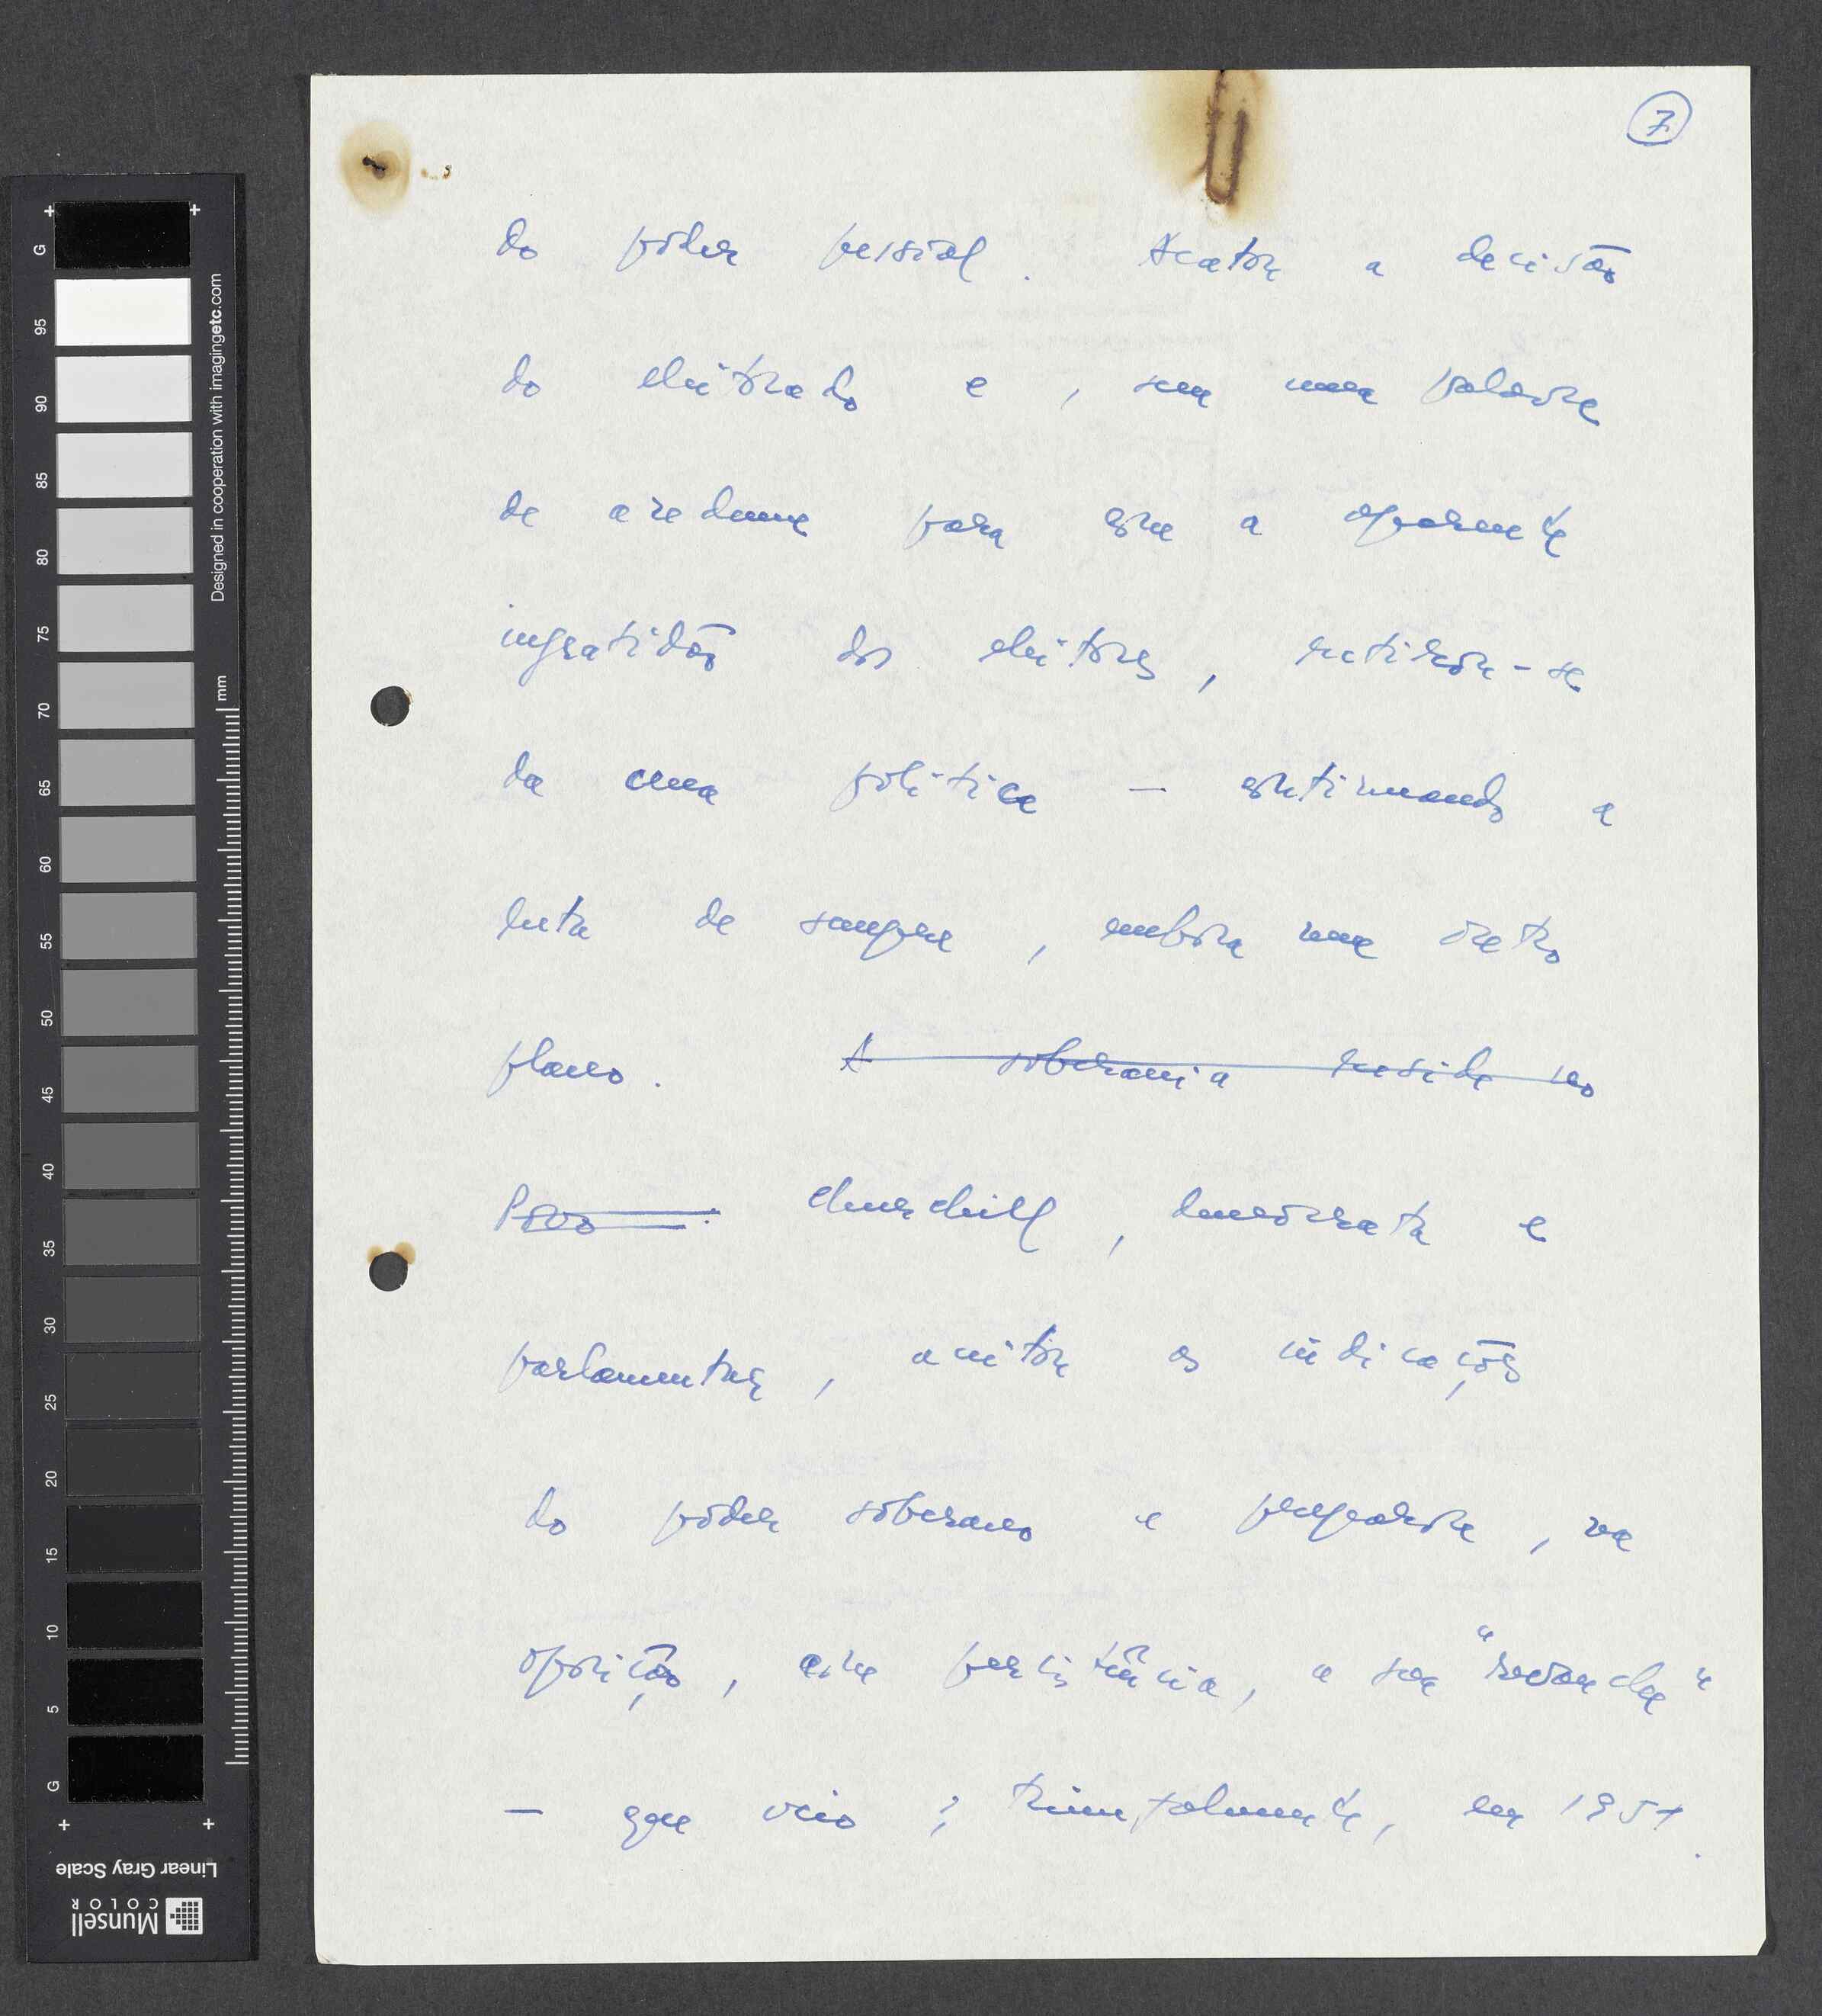 7
do poder pessoal. Acatou a decisão
do eleitorado e, sem uma palavra
de azedume para com a aparente
ingratidão dos eleitores, retirou-se
da cena política — continuando a
luta de sempre, embora num outro
plano. A soberania reside no
Povo. Churchill, democrata e
parlamentar, aceitou as indicações
do poder soberano e preparou, na
oposição, com persistência, a sua "revanche"
— que veio, triunfalmente, em 1951.
Designed in cooperation with imagingetc.com
mm
G 95 90 85 80 75 70 65 60 55 50 45 40 35 30 25 20 15 10 5 G
Linear Gray Scale
Munsell
COLOR